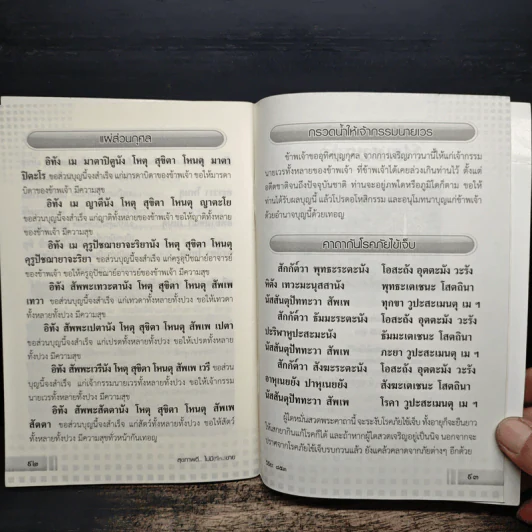 แผ่ส่วนกุศล
อิทัง เม มาตาปิตูนัง โหตุ สุขิตา โหนตุ มาตา
ปิตะโร ขอส่วนบุญนี้จงสำเร็จ แก่มารดาบิดาของข้าพเจ้า ขอให้มารดา
บิดาของข้าพเจ้า มีความสุข
อิทัง เม ญาตีนัง โหตุ สุขิตา โหนตุ ญาตะโย
ขอส่วนบุญนี้จงสำเร็จ แก่ญาติทั้งหลายของข้าพเจ้า ขอให้ญาติทั้งหลาย
ของข้าพเจ้า มีความสุข
อิทัง เม คุรูปัชฌายาจะริยานัง โหตุ สุขิตา โหนตุ
คุรูปัชฌายาจะริยา ขอส่วนบุญนี้จงสำเร็จ แก่ครูอุปัชฌาย์อาจารย์
ของข้าพเจ้า ขอให้ครูอุปัชฌาย์อาจารย์ของข้าพเจ้า มีความสุข
อิทัง สัพพะเทวะตานัง โหตุ สุขิตา โหนตุ สัพเพ
เทวา ขอส่วนบุญนี้จงสำเร็จ แก่เทวดาทั้งหลายทั้งปวง ขอให้เทวดา
ทั้งหลายทั้งปวง มีความสุข
อิทัง สัพพะเปตานัง โหตุ สุขิตา โหนตุ สัพเพ เปตา
ขอส่วนบุญนี้จงสำเร็จ แก่เปรตทั้งหลายทั้งปวง ขอให้เปรตทั้งหลาย
ทั้งปวง มีความสุข
อิทัง สัพพะเวรีนัง โหตุ สุขิตา โหนตุ สัพเพ เวรี ขอส่วน
บุญนี้จงสำเร็จ แก่เจ้ากรรมนายเวรทั้งหลายทั้งปวง ขอให้เจ้ากรรม
นายเวรทั้งหลายทั้งปวง มีความสุข
อิทัง สัพพะสัตตานัง โหตุ สุขิตา โหนตุ สัพเพ
สัตตา ขอส่วนบุญนี้จงสำเร็จ แก่สัตว์ทั้งหลายทั้งปวง ขอให้สัตว์
ทั้งหลายทั้งปวง มีความสุขทั่วหน้ากันเทอญ
๖๒
สุขภาพดี...
กรวดน้ำให้เจ้ากรรมนายเวร
ข้าพเจ้าขออุทิศบุญกุศล จากการเจริญภาวนานี้ให้แก่เจ้ากรรม
นายเวรทั้งหลายของข้าพเจ้า ที่ข้าพเจ้าได้เคยล่วงเกินท่านไว้ ตั้งแต่
อดีตชาติจนถึงปัจจุบันชาติ ท่านจะอยู่ภพใดหรือภูมิใดก็ตาม ขอให้
ท่านได้รับผลบุญนี้ แล้วโปรดอโหสิกรรม และอนุโมทนาบุญแก่ข้าพเจ้า
ด้วยอำนาจบุญนี้ด้วยเทอญ
คาถากันโรคภัยไข้เจ็บ
สักกัตวา พุทธะระตะนัง โอสะถัง อุตตะมัง วะรัง
หิตัง เทวะมะนุสสานัง พุทธะเตเชนะ โสตถินา
นัสสันตุปัททะวา สัพเพ ทุกขา วูปะสะเมนตุ เม ฯ
สักกัตวา ธัมมะระตะนัง โอสะถัง อุตตะมัง วะรัง
ปะริฬาหูปะสะมะนัง ธัมมะเตเชนะ โสตถินา
นัสสันตุปัททะวา สัพเพ ภะยา วูปะสะเมนตุ เม ฯ
สักกัตวา สังฆะระตะนัง โอสะถัง อุตตะมัง วะรัง
อาหุเนยยัง ปาหุเนยยัง สังฆะเตเชนะ โสตถินา
นัสสันตุปัททะวา สัพเพ โรคา วูปะสะเมนตุ เม ฯ
ผู้ใดหมั่นสวดพระคาถานี้ จะระงับโรคภัยไข้เจ็บ ทั้งอายุก็จะยืนยาว
ใช้เสกยากินแก้โรคก็ได้ และถ้าหากผู้ใดสวดเจริญอยู่เป็นนิจ นอกจากจะ
ปราศจากโรคภัยไข้เจ็บรบกวนแล้ว ยังแคล้วคลาดจากภัยต่างๆ อีกด้วย
๖๓